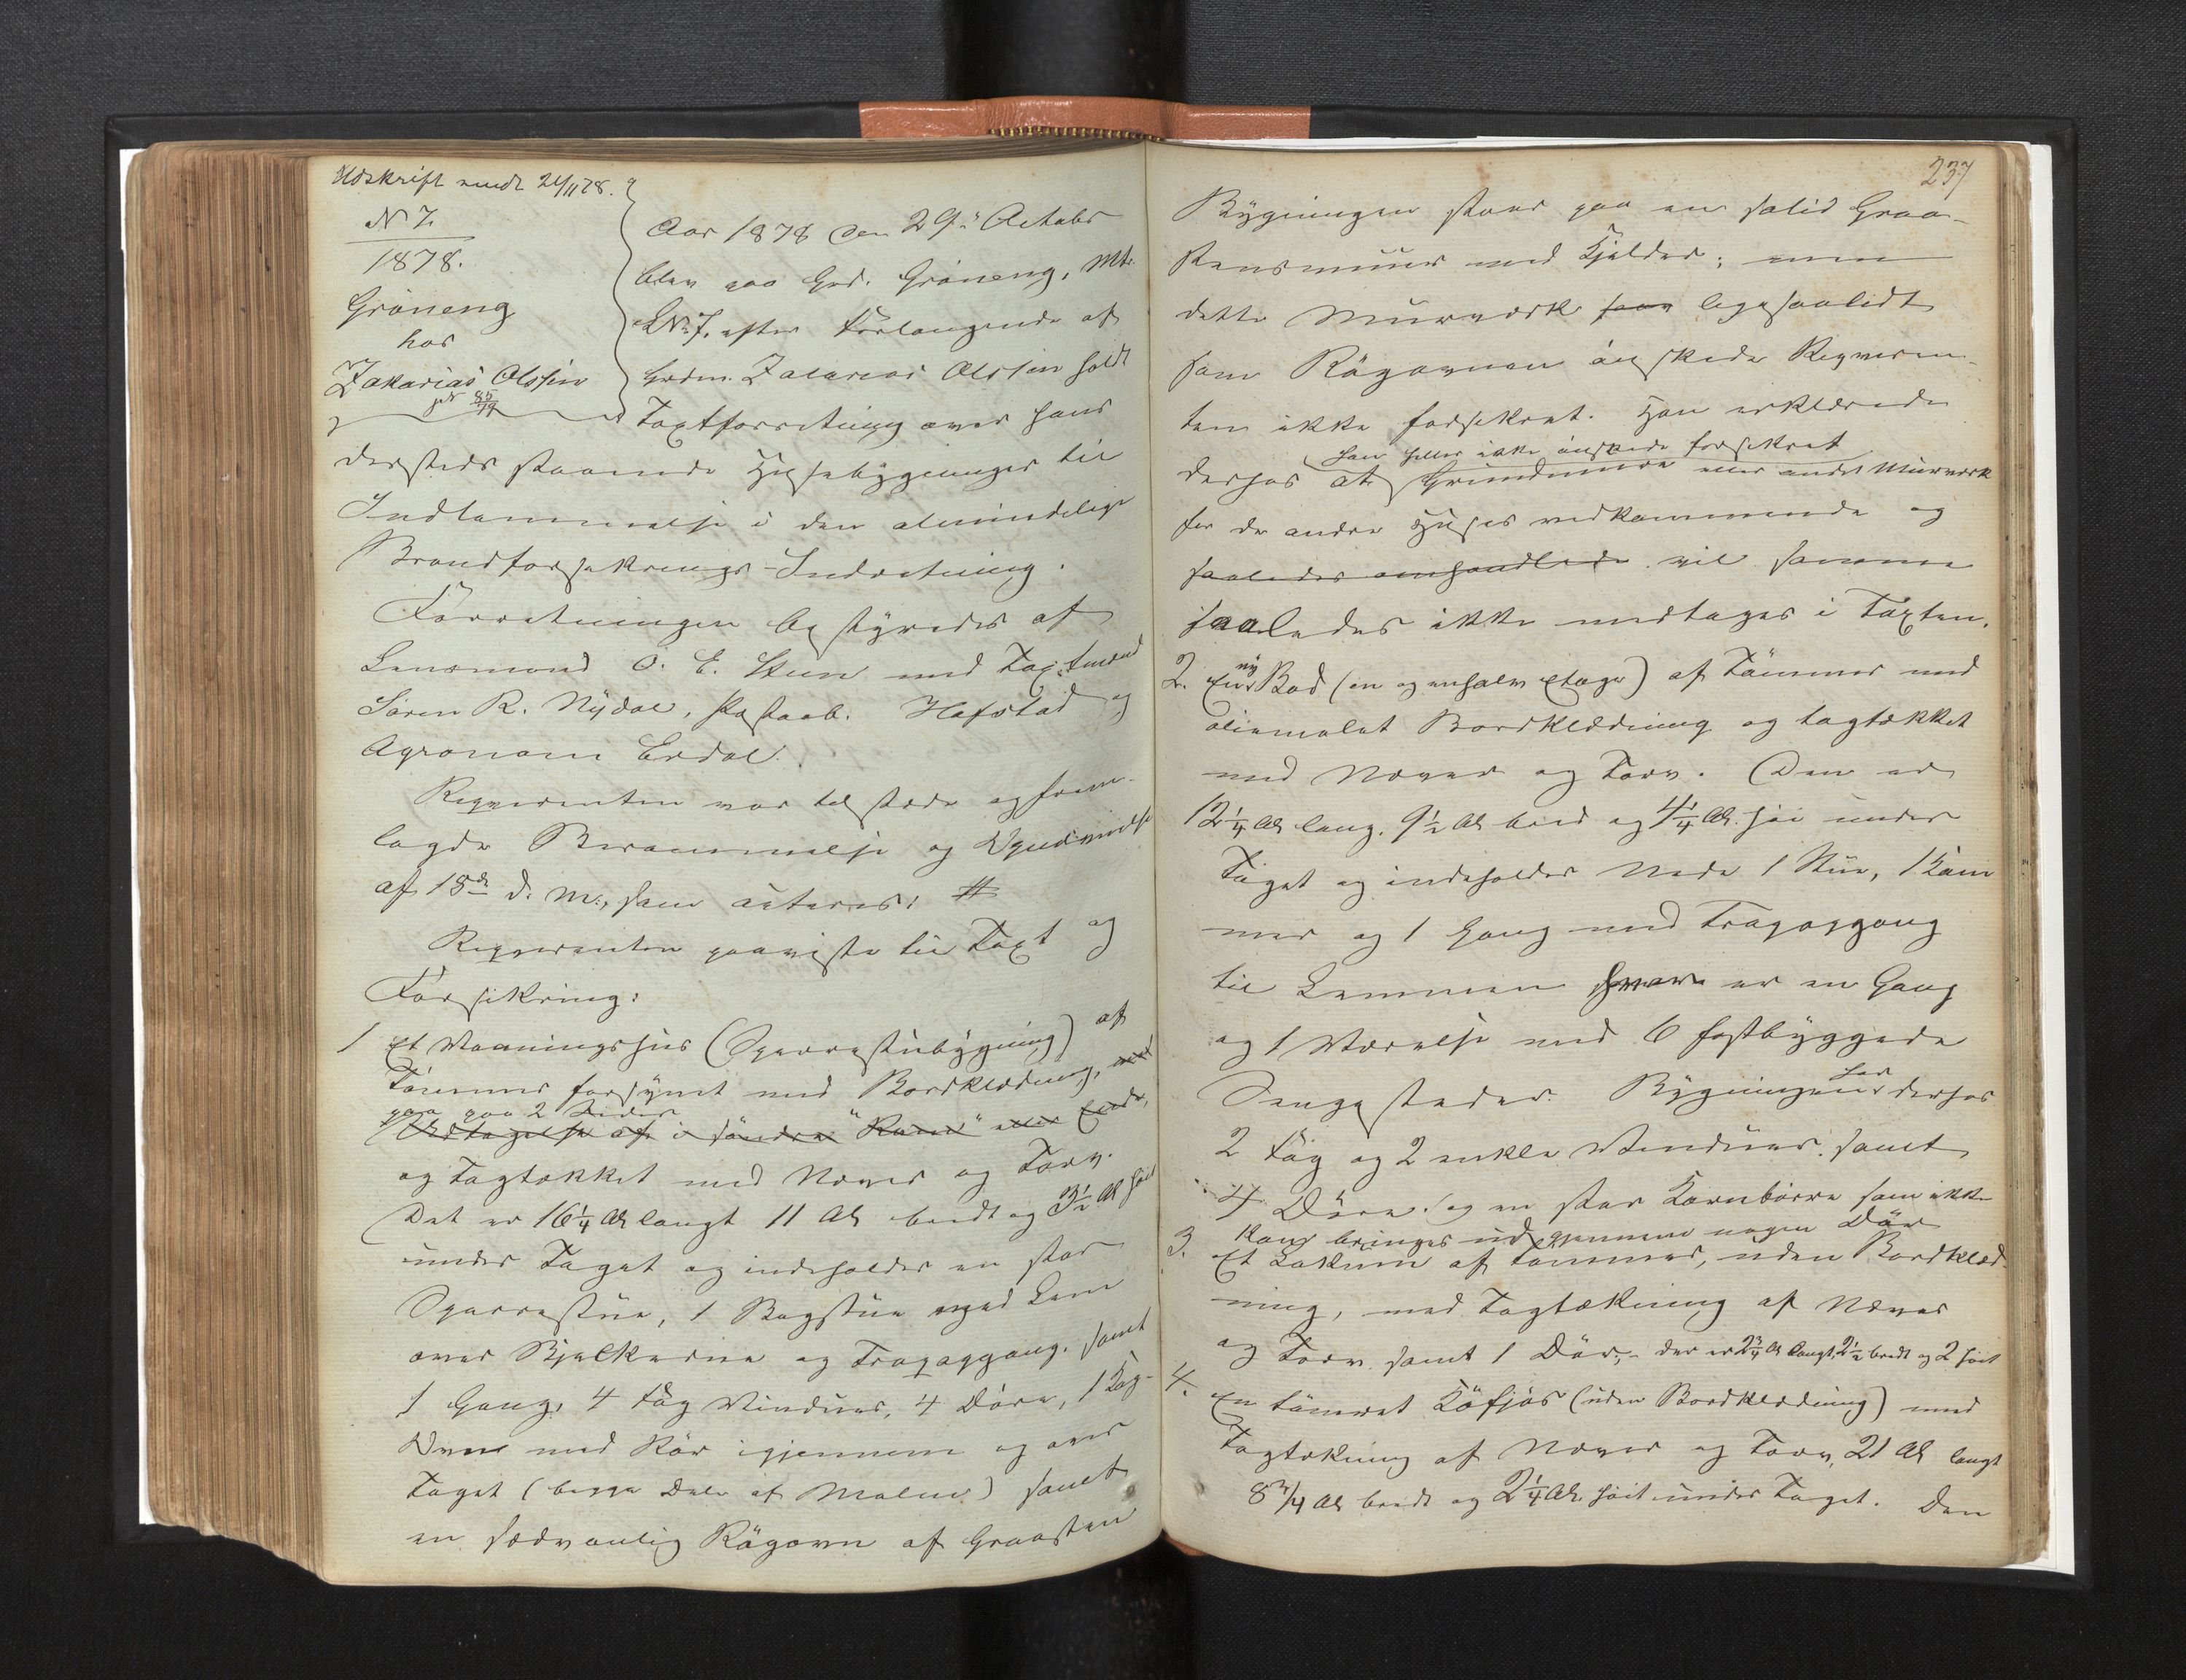 Udskrift sendt 21/11 78.
N 7.
1878.
Gröneng
hos
Zakarias Olssen
85/79
Aar 1878 den 29de Octobr
blev paa Grd. Gröneng, Mtr.
LNo 7, efter Forlangende af
Grdm. Zakarias Olssen holdt
Taxtforretning over hans
dersteds staaende Husebygninger til
Indlemmelse i den almindelige
Brandforsikrings-Indretning.
Forretningen bestyredes af
Lensmand O. E. Steen med Taxtmænd
Sören R. Nydal, Hafstad og
Agronom Erdal.
Reqvirenten var tilstede og frem-
lagde Berammelse og Opnævnelse
af 18de d. M., som acteres: #
Reqvirenten paaviste til Taxt og
Forsikring:
1 Et Vaaningshus (Sperrestubygning) af
Tömmer forsynet med Bordklædning, med
paa 2 Sider
Undtagelse af i söndre "Ram" eller Ende,
og Tagtækket med Næver og Torv.
Det er 16 1/4 Al langt 11 Al bredt og 3 1/2 Al höit
under Taget og indeholder en stor
Sperrestue, 1 Bagstue med Lem
over Bjelkerne og Trapopgang, samt
1 Gang, 4 Fag Vinduer, 4 Döre, 1 Kog-
Ovn med Rör igjennem og over
Taget (begge Dele af Malm) samt
en sædvanlig Rögovn af Graasten
237
Bygningen staar paa en solid Graa-
stensmuur med Kjelder; men
dette Murværk saa ligesaalidt
som Rögovnen önskede Reqviren-
ten ikke forsikret. Han erklærede
han heller ikke önskede forsikret
derhos at Grundmure eller andet Murværk
for de andre Huses vedkommende og
saaledes omhandlede vil samme
saaledes ikke medtages i Taxten.
2. En ny Bod (en og enhalv Etage) af Tömmer med
oliemalet Bordklædning og tagtækket
med Næver og Torv. Den er
12 1/4 Al lang, 9 1/2 Al bred og 4 1/4 Al. höi under
Taget og indeholder Nede 1 Stue, 1 Kam
mer og 1 Gang med Trapopgang
til Lemmen hvor er en Gang
og 1 Værelse med 6 fastbyggede
Sengesteder. Bygningen har derhos
2 Fag og 2 enkle Vinduer samt
4 Döre (og en stor Kornbörre som ikke
kan bringes ud gjennem nogen Dör
3. Et Lokum af Tömmer, uden Bordklæd-
ning, med Tagtækning af Næver
og Torv samt 1 Dör, der er 2 3/4 Al langt, 2 1/2 bredt og 2 höit
4. En tömret Köfjös (uden Bordklædning) med
Tagtækning af Næver og Torv, 21 Al langt
8 3/4 Al bredt og 2 1/4 Al. höit under Taget. Den